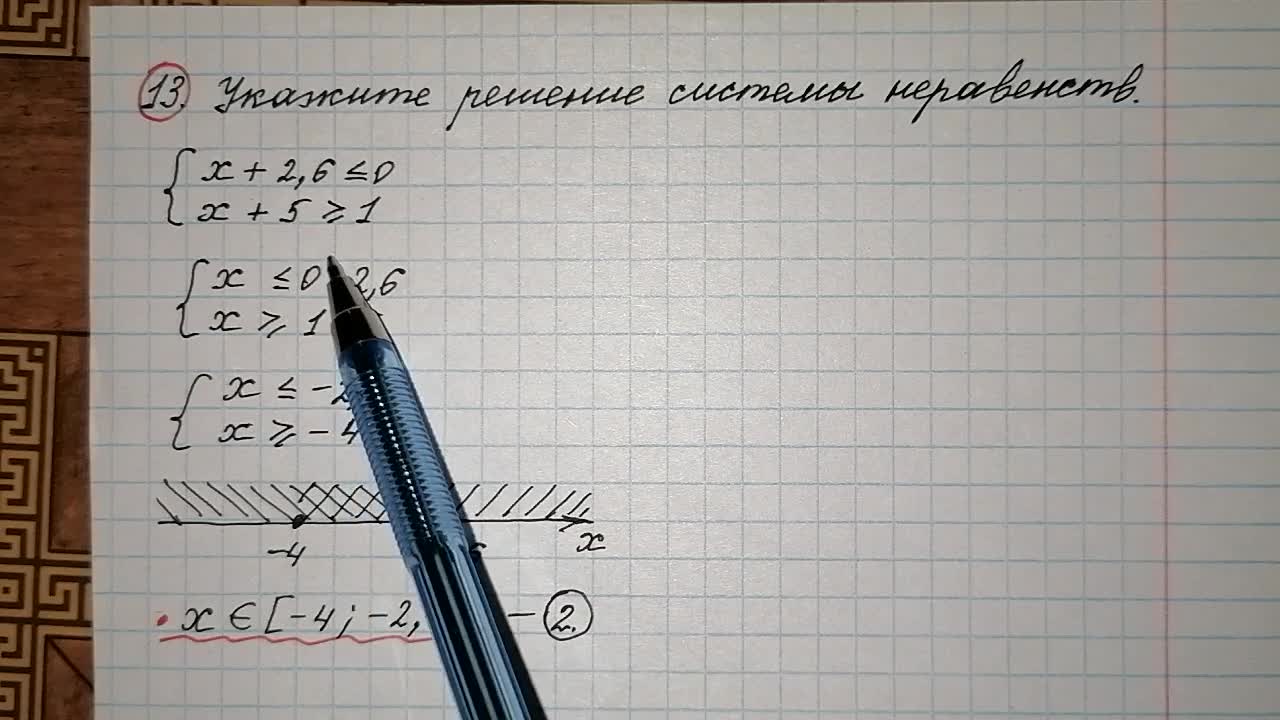 13. Укажите решение системы неравенств.
x + 2,6 ≤ 0
x + 5 ≥ 1
x ≤ 0 2,6
x ≥ 1
x ≤ -2
x ≥ -4
-4 x
x ∈ [-4; -2, - 2.